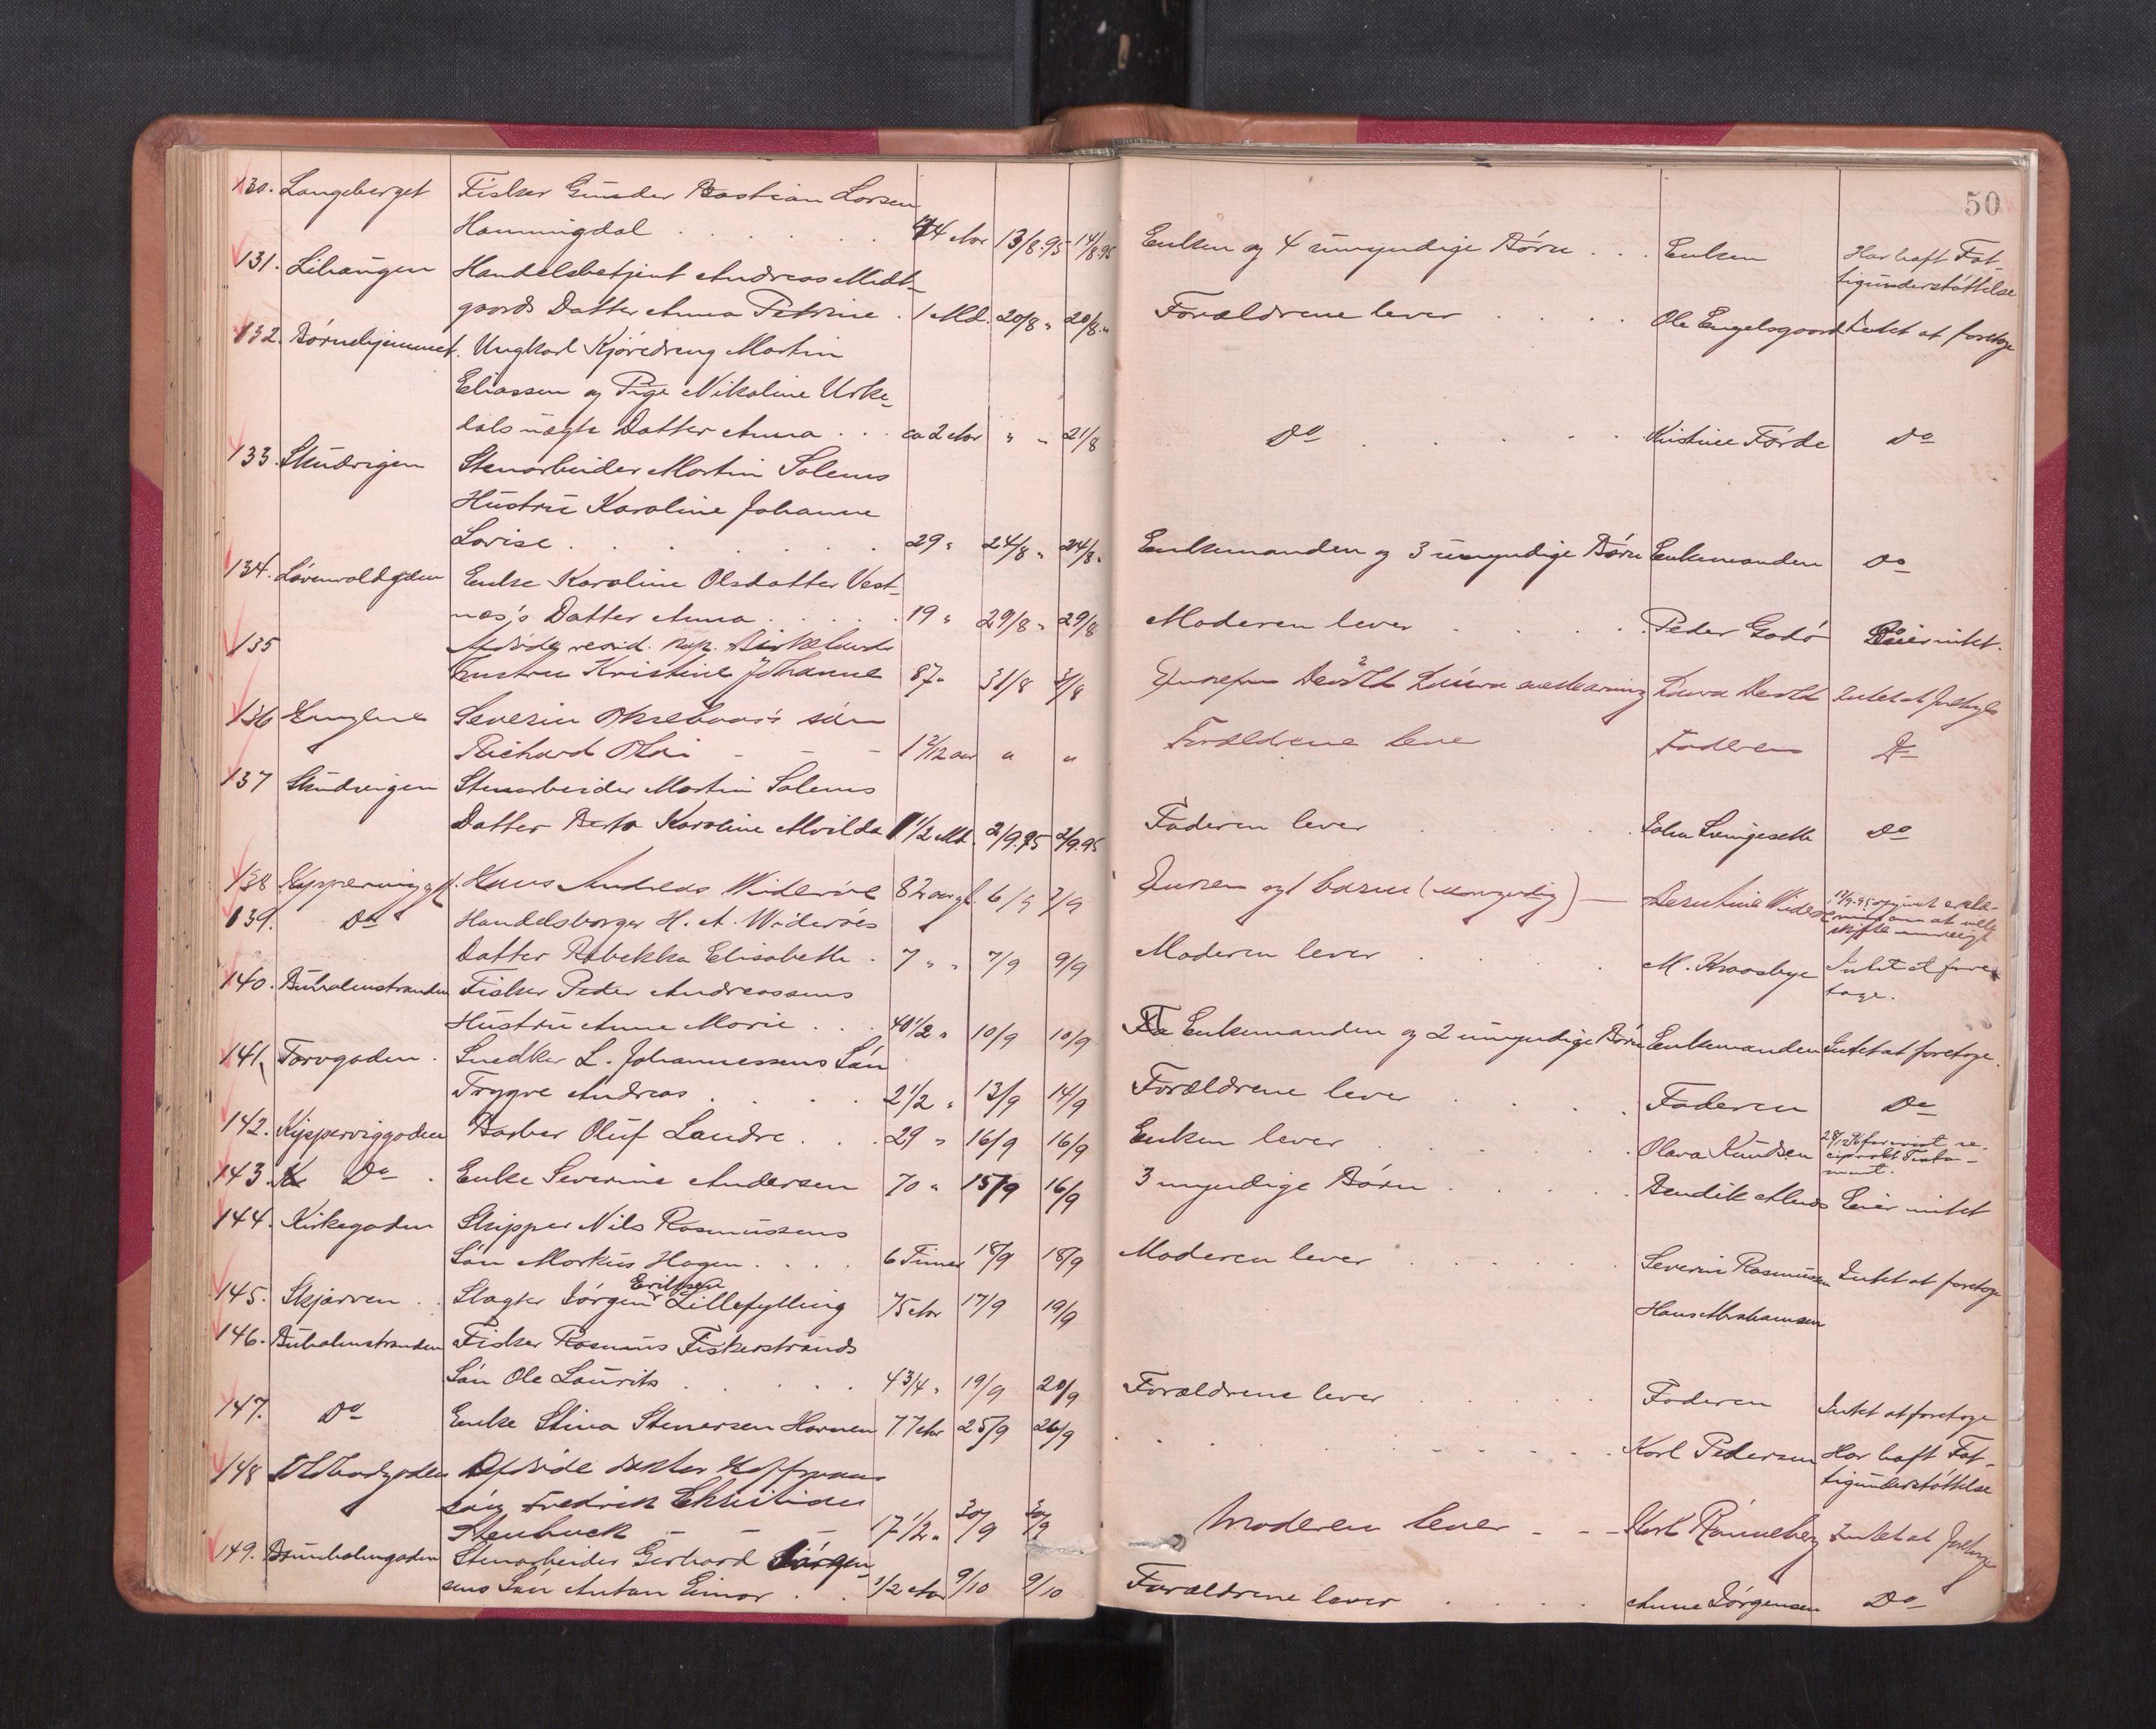 50
130. Langeberget Fisker Gunder Bastian Larsen
Hammingdal . . . 44 Aar 13/8.95 14/8.95 Enken og 4 umyndige Børn . . . Enken Har haft Fat-
tigunderstøttelse
131. Lihaugen Handelsbetjent Andreas Midt-
gaards Datter Anna Petrine . 1 Md. 20/8 " 20/8 " Forældrene lever . . . . Ole Engelsgaard Intet at foretage
132. Børnehjemmet. Ungkarl Kjøredreng Martin
Eliassen og Pige Nikoline Urke-
dals uægte Datter Anna . . . ca 2 Aar " " 21/8 Do . . . . Kristine Førde Do
133. Skudvigen Stenarbeider Martin Solems
Hustru Karoline Johanne
Lovise . . . . . 29 " 24/8 " 24/8 " Enkemanden og 3 umyndige Børn Enkemanden Do
134. Løvenvoldgden Enke Karoline Olsdatter Vest-
nes's Datter Anna . . . . 19 " 29/8 " 29/8 Moderen lever . . . . Peder Godø Eier intet.
135 Afdøde resid. kap. Birkelands
Hustru Kristine Johanne 87 " 31/8 3/8 Devold Laura Devold Intet at foretage
136 Severin søn
Richard Olai - - - 1 2/12 aar " " Forældrene lever Faderen Do
137 Skudvigen Stenarbeider Martin Solems
Datter Berta Karoline Alvilda 1 1/2 Md. 2/9.95 2/9.95 Faderen lever . . . . John Svingeseth Do
138 Kipperviggd. Hans Andreas Widerøe 82 aar gl. 6/9 7/9 Enken og 1 barn (umyndig) — Widerøe 17/9-95
139. Do Handelsborger H. A. Widerøes
Datter Rebekka Elisabeth . 7 " " 7/9 9/9 Moderen lever . . . . M. Kraasbye Intet at fore-
tage.
140. Buholmstranden Fisker Peder Andreassens
Hustru Anne Marie . . . 40 1/2 " 10/9 10/9 Enkemanden og 2 umyndige Børn Enkemanden Intet at foretage.
141. Torvgaden . Snedker L. Johannessens Søn
Trygve Andreas . . . . 2 1/2 " 13/9 14/9 Forældrene lever . . . . Faderen Do
142. Kipperviggaden Barber Oluf Landre . . . 29 " 16/9 16/9 Enken lever . . . . Olava Knudsen re-
ciprokt Testa-
ment.
143. Do . Enke Severine Andersen 70 " 15/9 16/9 3 myndige Børn . . . . Bendik Alnes Eier intet
144. Kirkegaden Skipper Nils Rasmussens
Søn Markus Hagen . . . . 6 Timer 18/9 18/9 Moderen lever . . . . Severin Rasmussen Intet at foretage
145. Skjærven . . Slagter Jørgen Eriksen Lillefylling 75 Aar 17/9 19/9 Hans Abrahamsen
146. Buholmstranden Fisker Rasmus Fiskerstrands
Søn Ole Laurits . . . . . 4 3/4 " 19/9 20/9 Forældrene lever . . . . Faderen Intet at foretage
147. Do Enke Stina Stenersen Havnen 77 Aar 25/9 26/9 . . . . Karl Pedersen Har haft Fat-
tigunderstøttelse
148 Afdøde doktor Hoffmanns
søn Fredrik Christian
Stenbuck - - - 17 1/2 " 30/9 30/9 Moderen lever - - - Karl Rønneberg Intet at foretage
149. Brunholmgaden Stenarbeider Gerhard Jørgen-
sens Søn Anton Einar . . . 1/2 Aar 9/10 9/10 Forældrene lever . . . . Anne Jørgensen Do